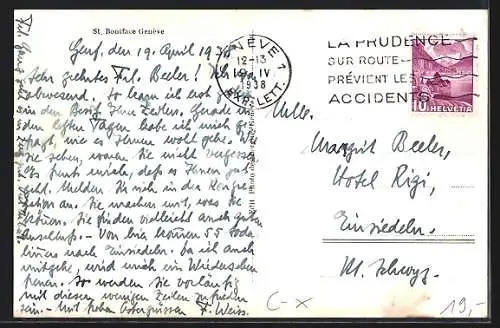 St. Boniface Genève
Genf, den 19. April 1938
Sehr geehrtes Frl. Beeler! Ich war
abwesend. So kam ich erst
in den Besitz Ihrer Zeilen. Gerade in
den letzten Tagen habe ich mich ge-
fragt, wie es Ihnen wohl gehe. Wie
Sie sehen, waren Sie nicht vergessen.
Es freut mich, dass es Ihnen gut
geht. Melden Sie sich in der Kongre-
gation an. Sie machen mit, was Sie
können. Sie finden vielleicht auch guten
Anschluss. - Von hier kommen 55
nach Einsiedeln. Da ich auch
mitgehe, wird auch ein Wiedersehen
sein. So werden Sie vorläufig
mit diesen wenigen Zeilen zufrieden
sein. - Mit frohen Ostergrüssen F. Weiss.
GENÈVE 1
12-13
19.IV.
1938
EXP. LETT.
LA PRUDENCE
SUR ROUTE
PRÉVIENT LES
ACCIDENTS
10 HELVETIA
Mlle.
Margrit Beeler,
Hotel Rigi,
Einsiedeln.
Kt. Schwyz.
C-X
19,-